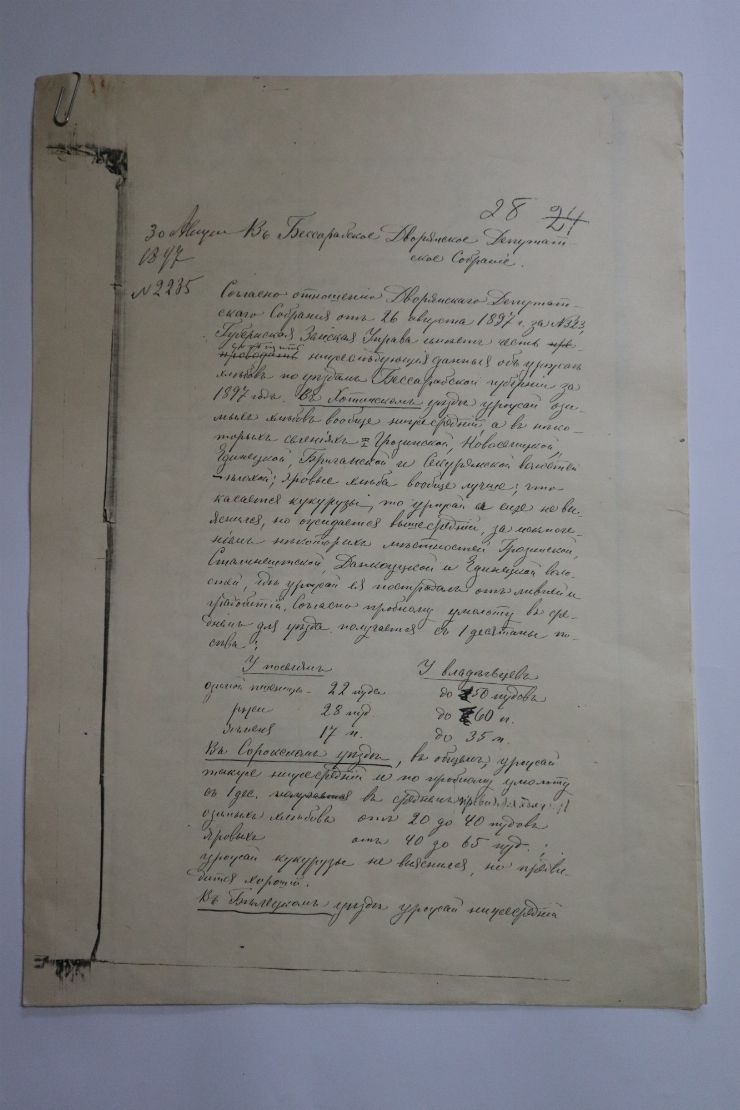 28 24
30 Августа Въ Бессарабское Дворянское Депутат-
1897 ское Собраніе.
№ 2235
Согласно отношенію Дворянскаго Депутат-
скаго Собранія отъ 26 августа 1897 г. за № 323,
Губернская Земская Управа имѣетъ честь
нижеслѣдующія данныя объ урожаѣ
хлѣбовъ по уѣздамъ Бессарабской губерніи за
1897 годъ. Въ Хотинскомъ уѣздѣ урожай ози-
мыхъ хлѣбовъ вообще нижесредній, а въ нѣко-
торыхъ селеніяхъ Грозинской, Новоселицкой,
Единецкой, Бричанской и Секурянской волостей
плохой; яровые хлѣба вообще лучше; что
касается кукурузы, то урожай еще не вы-
яснился, но ожидается вышесредній, за исключе-
ніемъ нѣкоторыхъ мѣстностей Грозинской,
Сталинештской, Данкоуцкой и Единецкой воло-
стей, гдѣ урожай ея пострадалъ отъ ливней и
градобитій. Согласно пробному умолоту въ сре-
днемъ для уѣзда получается съ 1 десятины по-
сѣва:
У поселянъ У владѣльцевъ
озимой пшеницы 22 пуда до 50 пудовъ
ржи 28 пуд до 60 п.
ячменя 17 п. до 35 п.
Въ Сорокскомъ уѣздѣ, въ общемъ, урожай
также нижесредній и по пробному умолоту
съ 1 дес. въ среднемъ
озимыхъ хлѣбовъ отъ 20 до 40 пудовъ
яровыхъ отъ 40 до 65 пуд.;
урожай кукурузы не выяснился, но предви-
дится хорошій.
Въ Бѣлецкомъ уѣздѣ урожай нижесредній